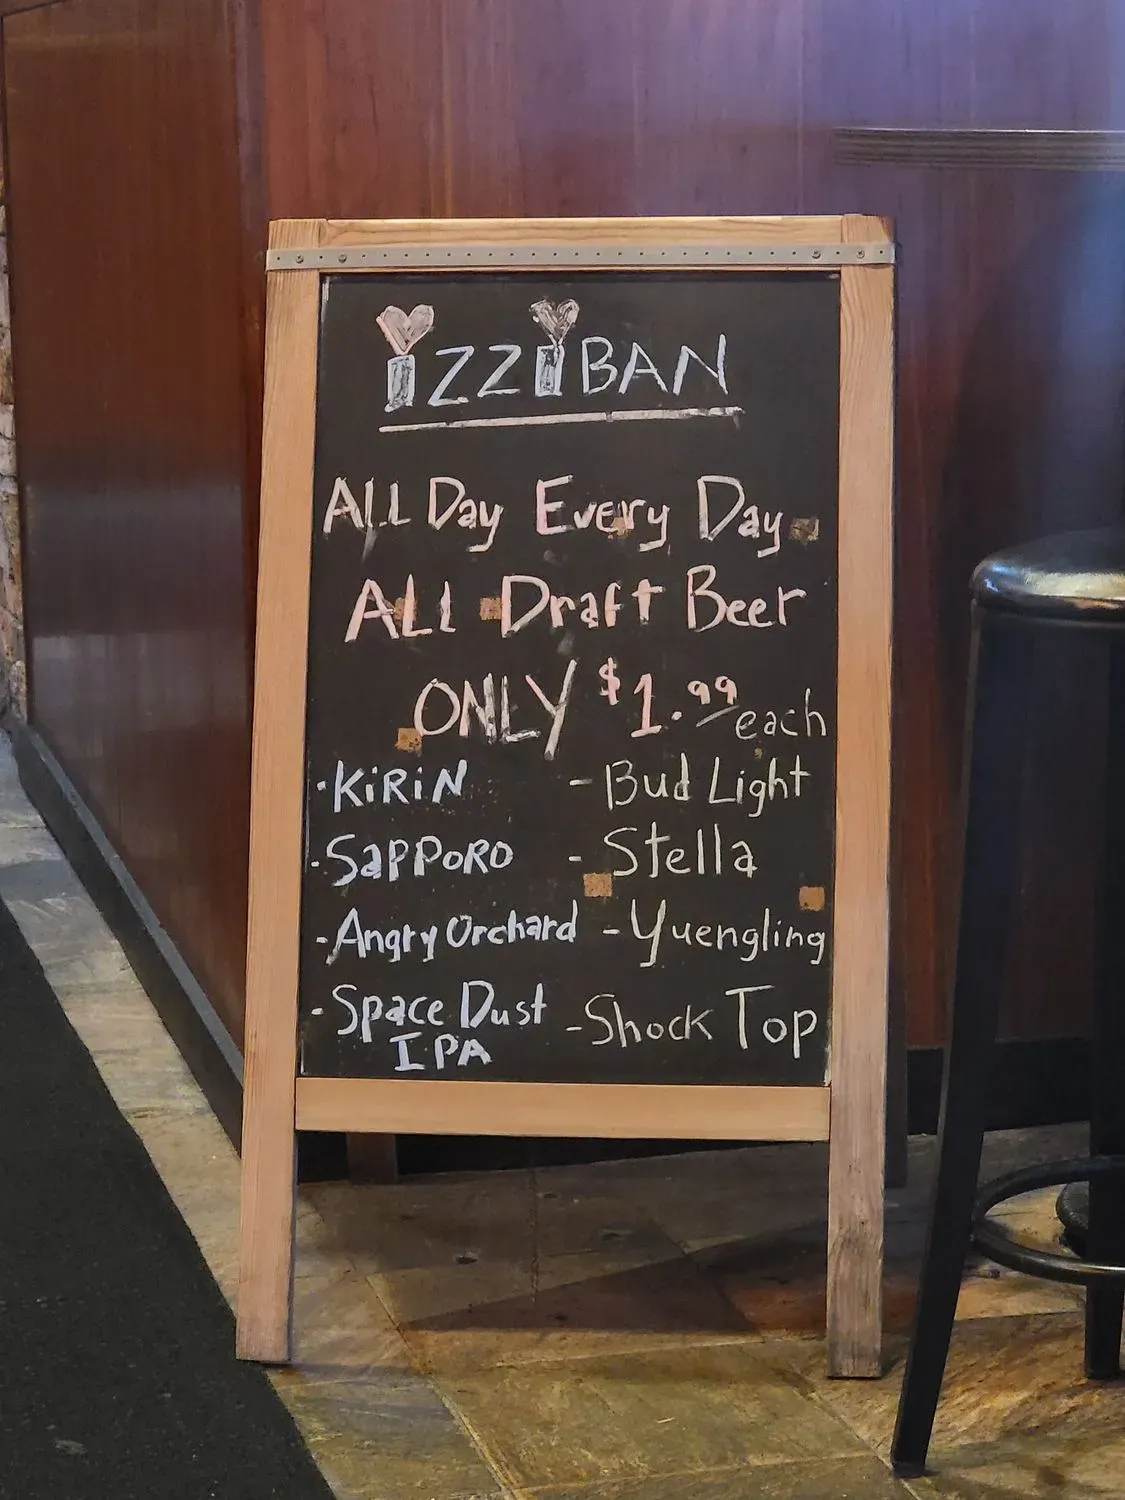 iZZiBAN
ALL Day Every Day
ALL Draft Beer
ONLY $1.99 each
·KiRiN
- Bud Light
·SaPPoRo
- Stella
·Angry Orchard
- Yuengling
·Space Dust
IPA
-Shock Top